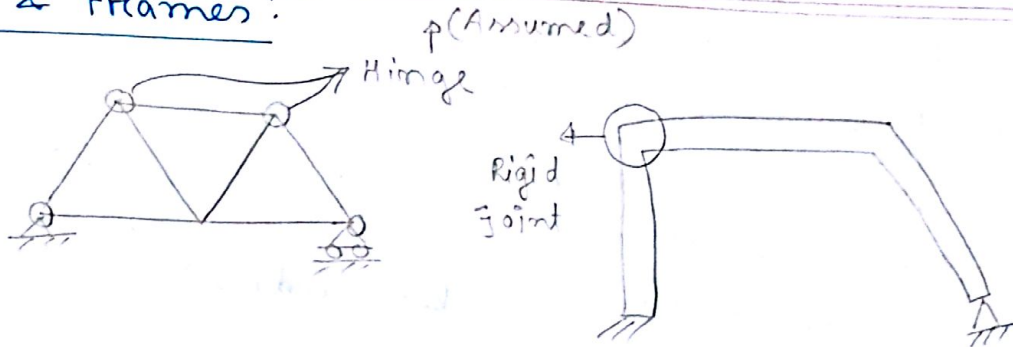 & Frames:
p(Assumed)
Hinge
Rigid
joint